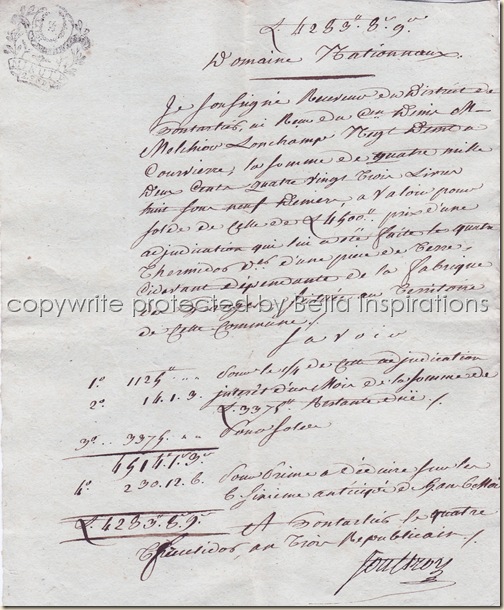 £ 4283.. 8.. 9..
Domaine Nationnaux.
Je Soussigné Receveur du District de
Pontarlier, ai Reçu du Cen Denis
Melchior Lonchamp Négt Dmt a
Courvierre, la somme de quatre mille
Deux Cents quatre vingt Trois Livres
huit sous neuf Deniers, a valoir pour
solde de Celle de £ 4500.. prix d'une
adjudication qui lui a été faite le quatre
Thermidor d'une pièce de Terre
Cidevant dépendante de la fabrique
copywrite protected by Bella Inspirations
Territoire
de Cette Commune /.
Savoir
1o 1125.. .. .. Pour le 1/4 de Cette adjudication
2o 14. 1. 3. interêt d'un Mois de la Somme de
£ 3375.. Restante /.
3o.. 3375. .. .. Pour Solde
4514. 1. 3
4o. 230. 12. 6. Pour Prime a déduire sur les
anticipé
£ 4283. 8. 9. A Pontarlier le quatre
an Trois Republicain /.